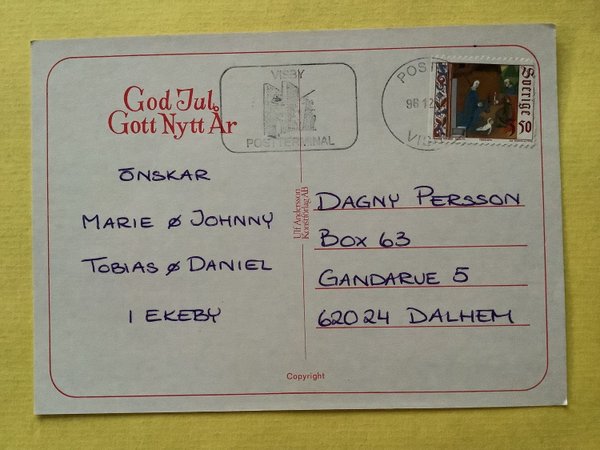 God Jul,
Gott Nytt År
ÖNSKAR
MARIE & JOHNNY
TOBIAS & DANIEL
I EKEBY
VISBY
POSTTERMINAL
POST
96 12
VIS
Sverige
50
Ulf Andersson
Konstförlag AB
DAGNY PERSSON
BOX 63
GANDARVE 5
62024 DALHEM
Copyright